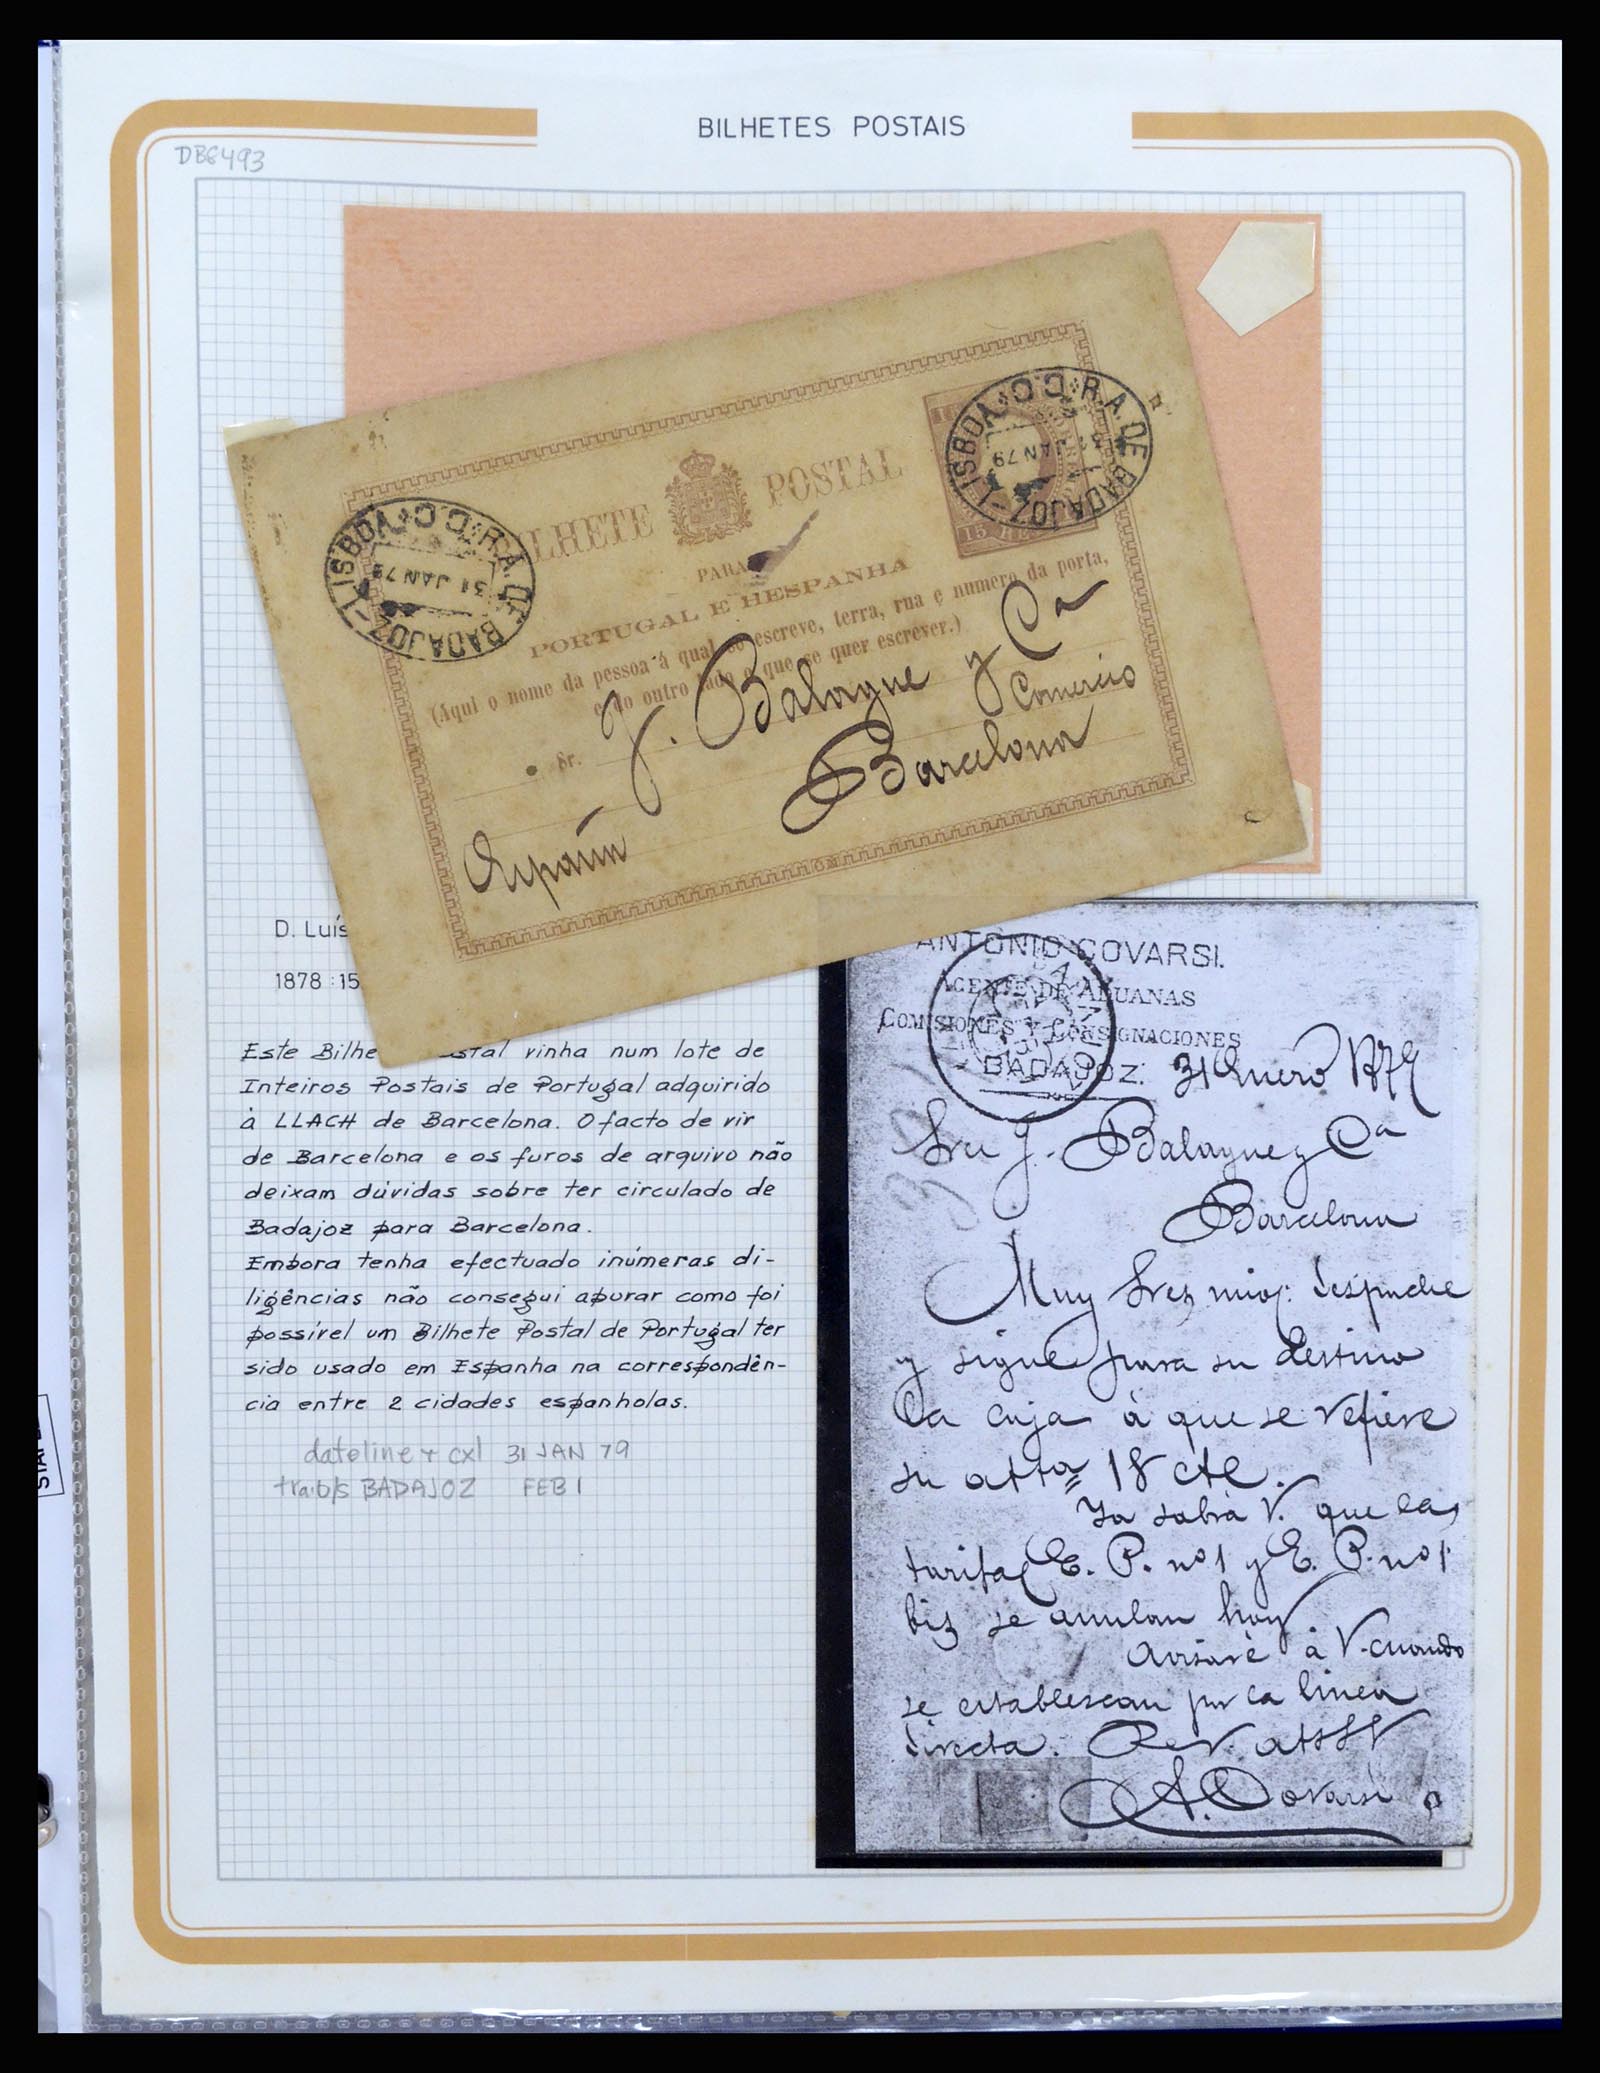 BILHETES POSTAIS
DB6493
BILHETE POSTAL
PARA
PORTUGAL E HESPANHA
(Aqui o nome da pessoa á qual se escreve, terra, rua e numero da porta,
e do outro lado o que se quer escrever.)
15 RE
LISBOA C.C. R.A. DE BADAJOZ
31 JAN 79
LISBOA C.C. R.A. DE BADAJOZ
31 JAN 79
Sr. J. Balague y Ca
Comercio
Barcelona
España
D. Luís
1878 : 15
Este Bilhe stal vinha num lote de
Inteiros Postais de Portugal adquirido
à LLACH de Barcelona. O facto de vir
de Barcelona e os furos de arquivo não
deixam dúvidas sobre ter circulado de
Badajoz para Barcelona.
Embora tenha efectuado inúmeras di-
ligências não consegui apurar como foi
possível um Bilhete Postal de Portugal ter
sido usado em Espanha na correspondên-
cia entre 2 cidades espanholas.
dateline + cxl 31 JAN 79
tra:b/s BADAJOZ FEB 1
ANTONIO COVARSI.
AGENTE DE ADUANAS
COMISIONES Y CONSIGNACIONES
BADAJOZ. 31 Enero 1879
Sres J. Balague y Ca
Barcelona
Muy Sres mios: despache
y sigue para su destino
la caja á que se refiere
su atta 18 cte.
Ya sabrá V. que las
tarifas E. P. nº 1 y E. P. nº 1
bis se anulan hoy
Avisaré á V. cuando
se establescan por la linea
directa.
A. Covarsi